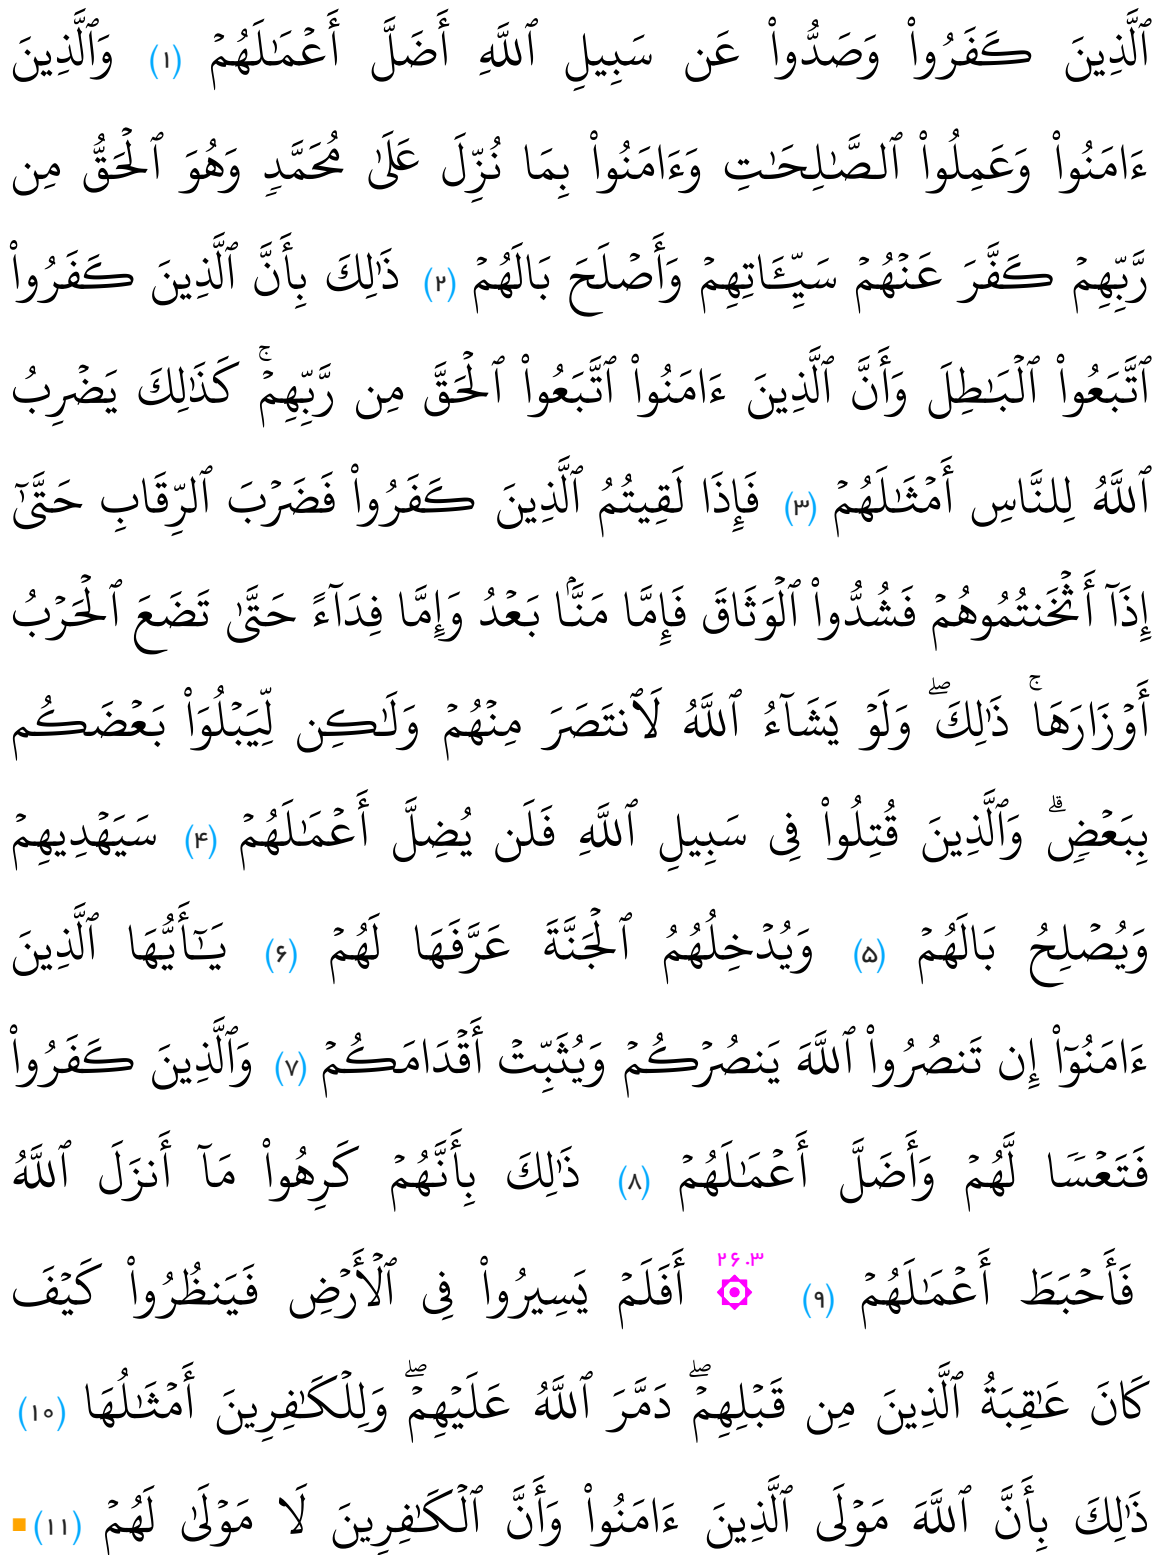 ٱلَّذِينَ كَفَرُوا۟ وَصَدُّوا۟ عَن سَبِيلِ ٱللَّهِ أَضَلَّ أَعْمَـٰلَهُمْ (۱) وَٱلَّذِينَ
ءَامَنُوا۟ وَعَمِلُوا۟ ٱلصَّـٰلِحَـٰتِ وَءَامَنُوا۟ بِمَا نُزِّلَ عَلَىٰ مُحَمَّدٍ وَهُوَ ٱلْحَقُّ مِن
رَّبِّهِمْ كَفَّرَ عَنْهُمْ سَيِّـَٔاتِهِمْ وَأَصْلَحَ بَالَهُمْ (۲) ذَٰلِكَ بِأَنَّ ٱلَّذِينَ كَفَرُوا۟
ٱتَّبَعُوا۟ ٱلْبَـٰطِلَ وَأَنَّ ٱلَّذِينَ ءَامَنُوا۟ ٱتَّبَعُوا۟ ٱلْحَقَّ مِن رَّبِّهِمْ ۚ كَذَٰلِكَ يَضْرِبُ
ٱللَّهُ لِلنَّاسِ أَمْثَـٰلَهُمْ (۳) فَإِذَا لَقِيتُمُ ٱلَّذِينَ كَفَرُوا۟ فَضَرْبَ ٱلرِّقَابِ حَتَّىٰٓ
إِذَآ أَثْخَنتُمُوهُمْ فَشُدُّوا۟ ٱلْوَثَاقَ فَإِمَّا مَنًّۢا بَعْدُ وَإِمَّا فِدَآءً حَتَّىٰ تَضَعَ ٱلْحَرْبُ
أَوْزَارَهَا ۚ ذَٰلِكَ ۖ وَلَوْ يَشَآءُ ٱللَّهُ لَٱنتَصَرَ مِنْهُمْ وَلَـٰكِن لِّيَبْلُوَا۟ بَعْضَكُم
بِبَعْضٍ ۗ وَٱلَّذِينَ قُتِلُوا۟ فِى سَبِيلِ ٱللَّهِ فَلَن يُضِلَّ أَعْمَـٰلَهُمْ (۴) سَيَهْدِيهِمْ
وَيُصْلِحُ بَالَهُمْ (۵) وَيُدْخِلُهُمُ ٱلْجَنَّةَ عَرَّفَهَا لَهُمْ (۶) يَـٰٓأَيُّهَا ٱلَّذِينَ
ءَامَنُوٓا۟ إِن تَنصُرُوا۟ ٱللَّهَ يَنصُرْكُمْ وَيُثَبِّتْ أَقْدَامَكُمْ (۷) وَٱلَّذِينَ كَفَرُوا۟
فَتَعْسًا لَّهُمْ وَأَضَلَّ أَعْمَـٰلَهُمْ (۸) ذَٰلِكَ بِأَنَّهُمْ كَرِهُوا۟ مَآ أَنزَلَ ٱللَّهُ
فَأَحْبَطَ أَعْمَـٰلَهُمْ (۹) ۞ ۲۶.۳ أَفَلَمْ يَسِيرُوا۟ فِى ٱلْأَرْضِ فَيَنظُرُوا۟ كَيْفَ
كَانَ عَـٰقِبَةُ ٱلَّذِينَ مِن قَبْلِهِمْ ۖ دَمَّرَ ٱللَّهُ عَلَيْهِمْ ۖ وَلِلْكَـٰفِرِينَ أَمْثَـٰلُهَا (۱۰)
ذَٰلِكَ بِأَنَّ ٱللَّهَ مَوْلَى ٱلَّذِينَ ءَامَنُوا۟ وَأَنَّ ٱلْكَـٰفِرِينَ لَا مَوْلَىٰ لَهُمْ (۱۱)